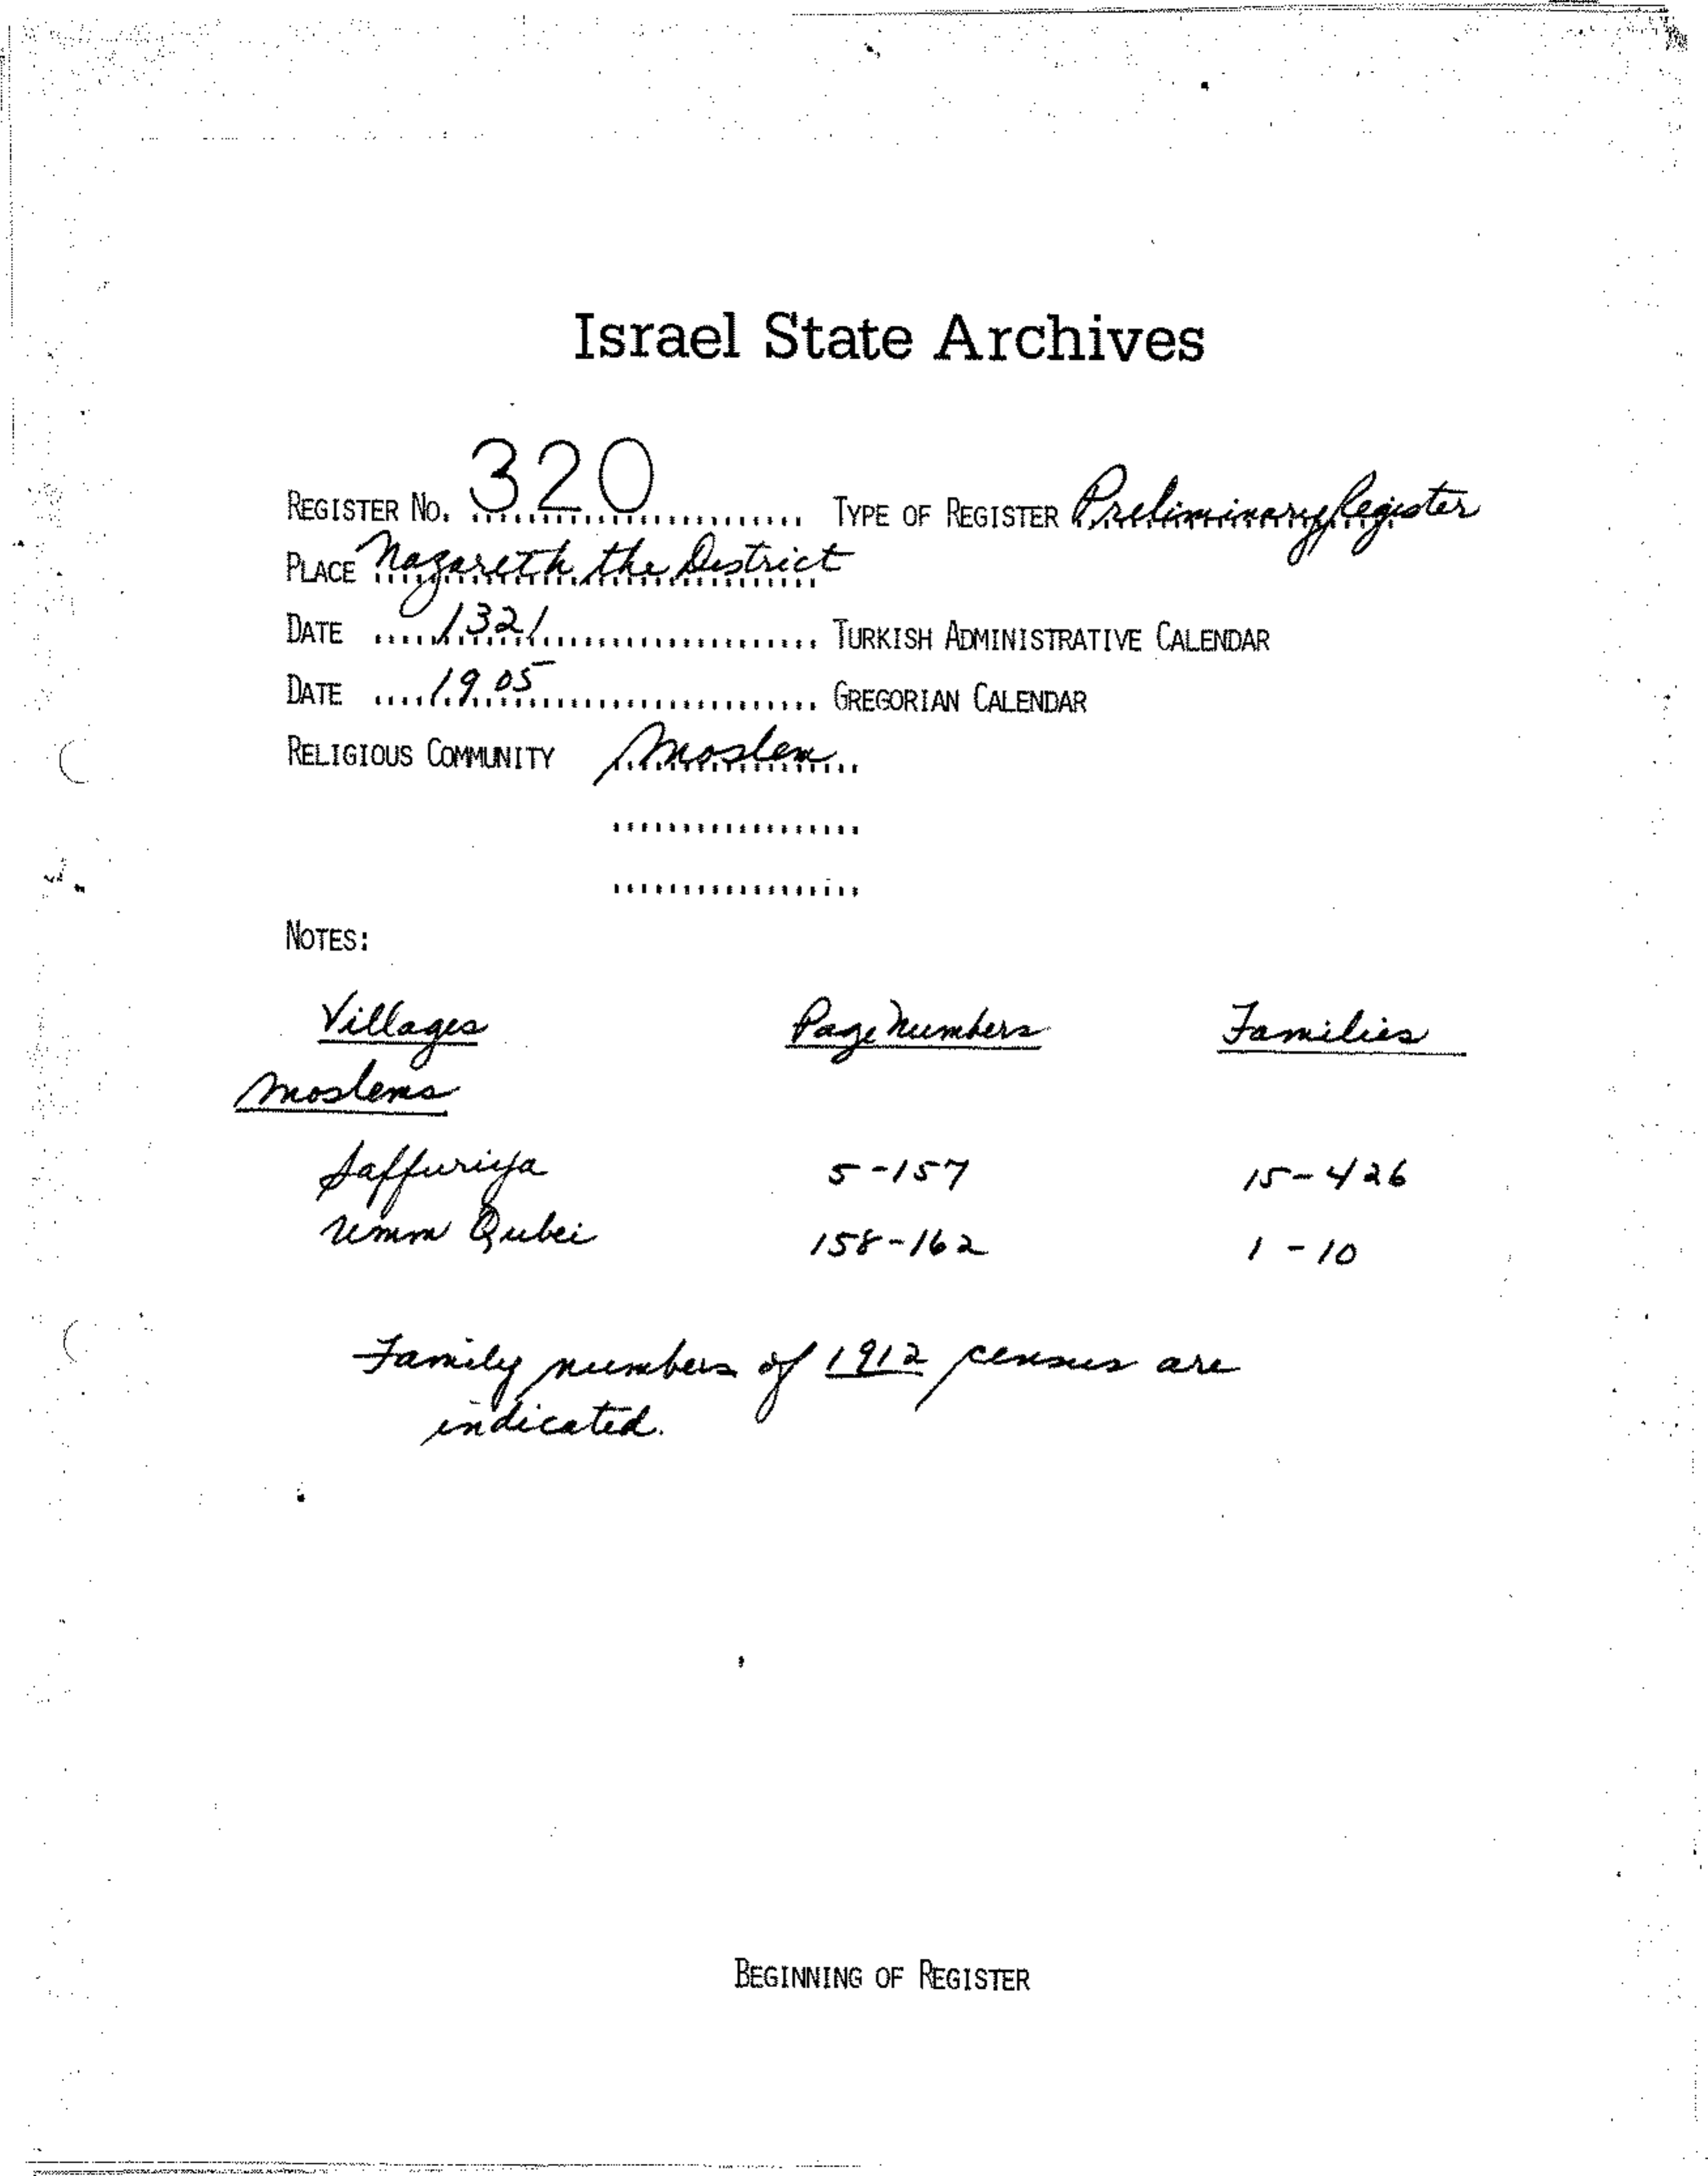 Israel State Archives
REGISTER NO. 320 TYPE OF REGISTER Preliminary Register
PLACE Nazareth the District
DATE 1321 TURKISH ADMINISTRATIVE CALENDAR
DATE 1905 GREGORIAN CALENDAR
RELIGIOUS COMMUNITY Moslem
NOTES:
Villages Page Numbers Families
Moslems
Saffuriya 5-157 15-426
Umm Qubei 158-162 1-10
Family numbers of 1912 census are
indicated.
BEGINNING OF REGISTER